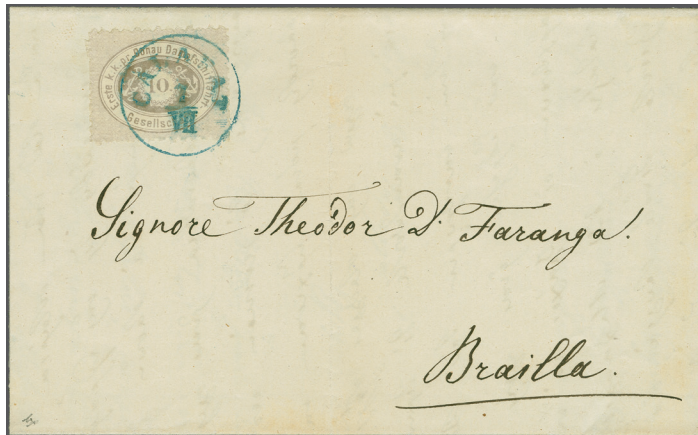 Erste k. k. pr. Donau Dampfschiffahrt
10
Gesellsch
7
VII
Signore Theodor D. Faranga.
Brailla.